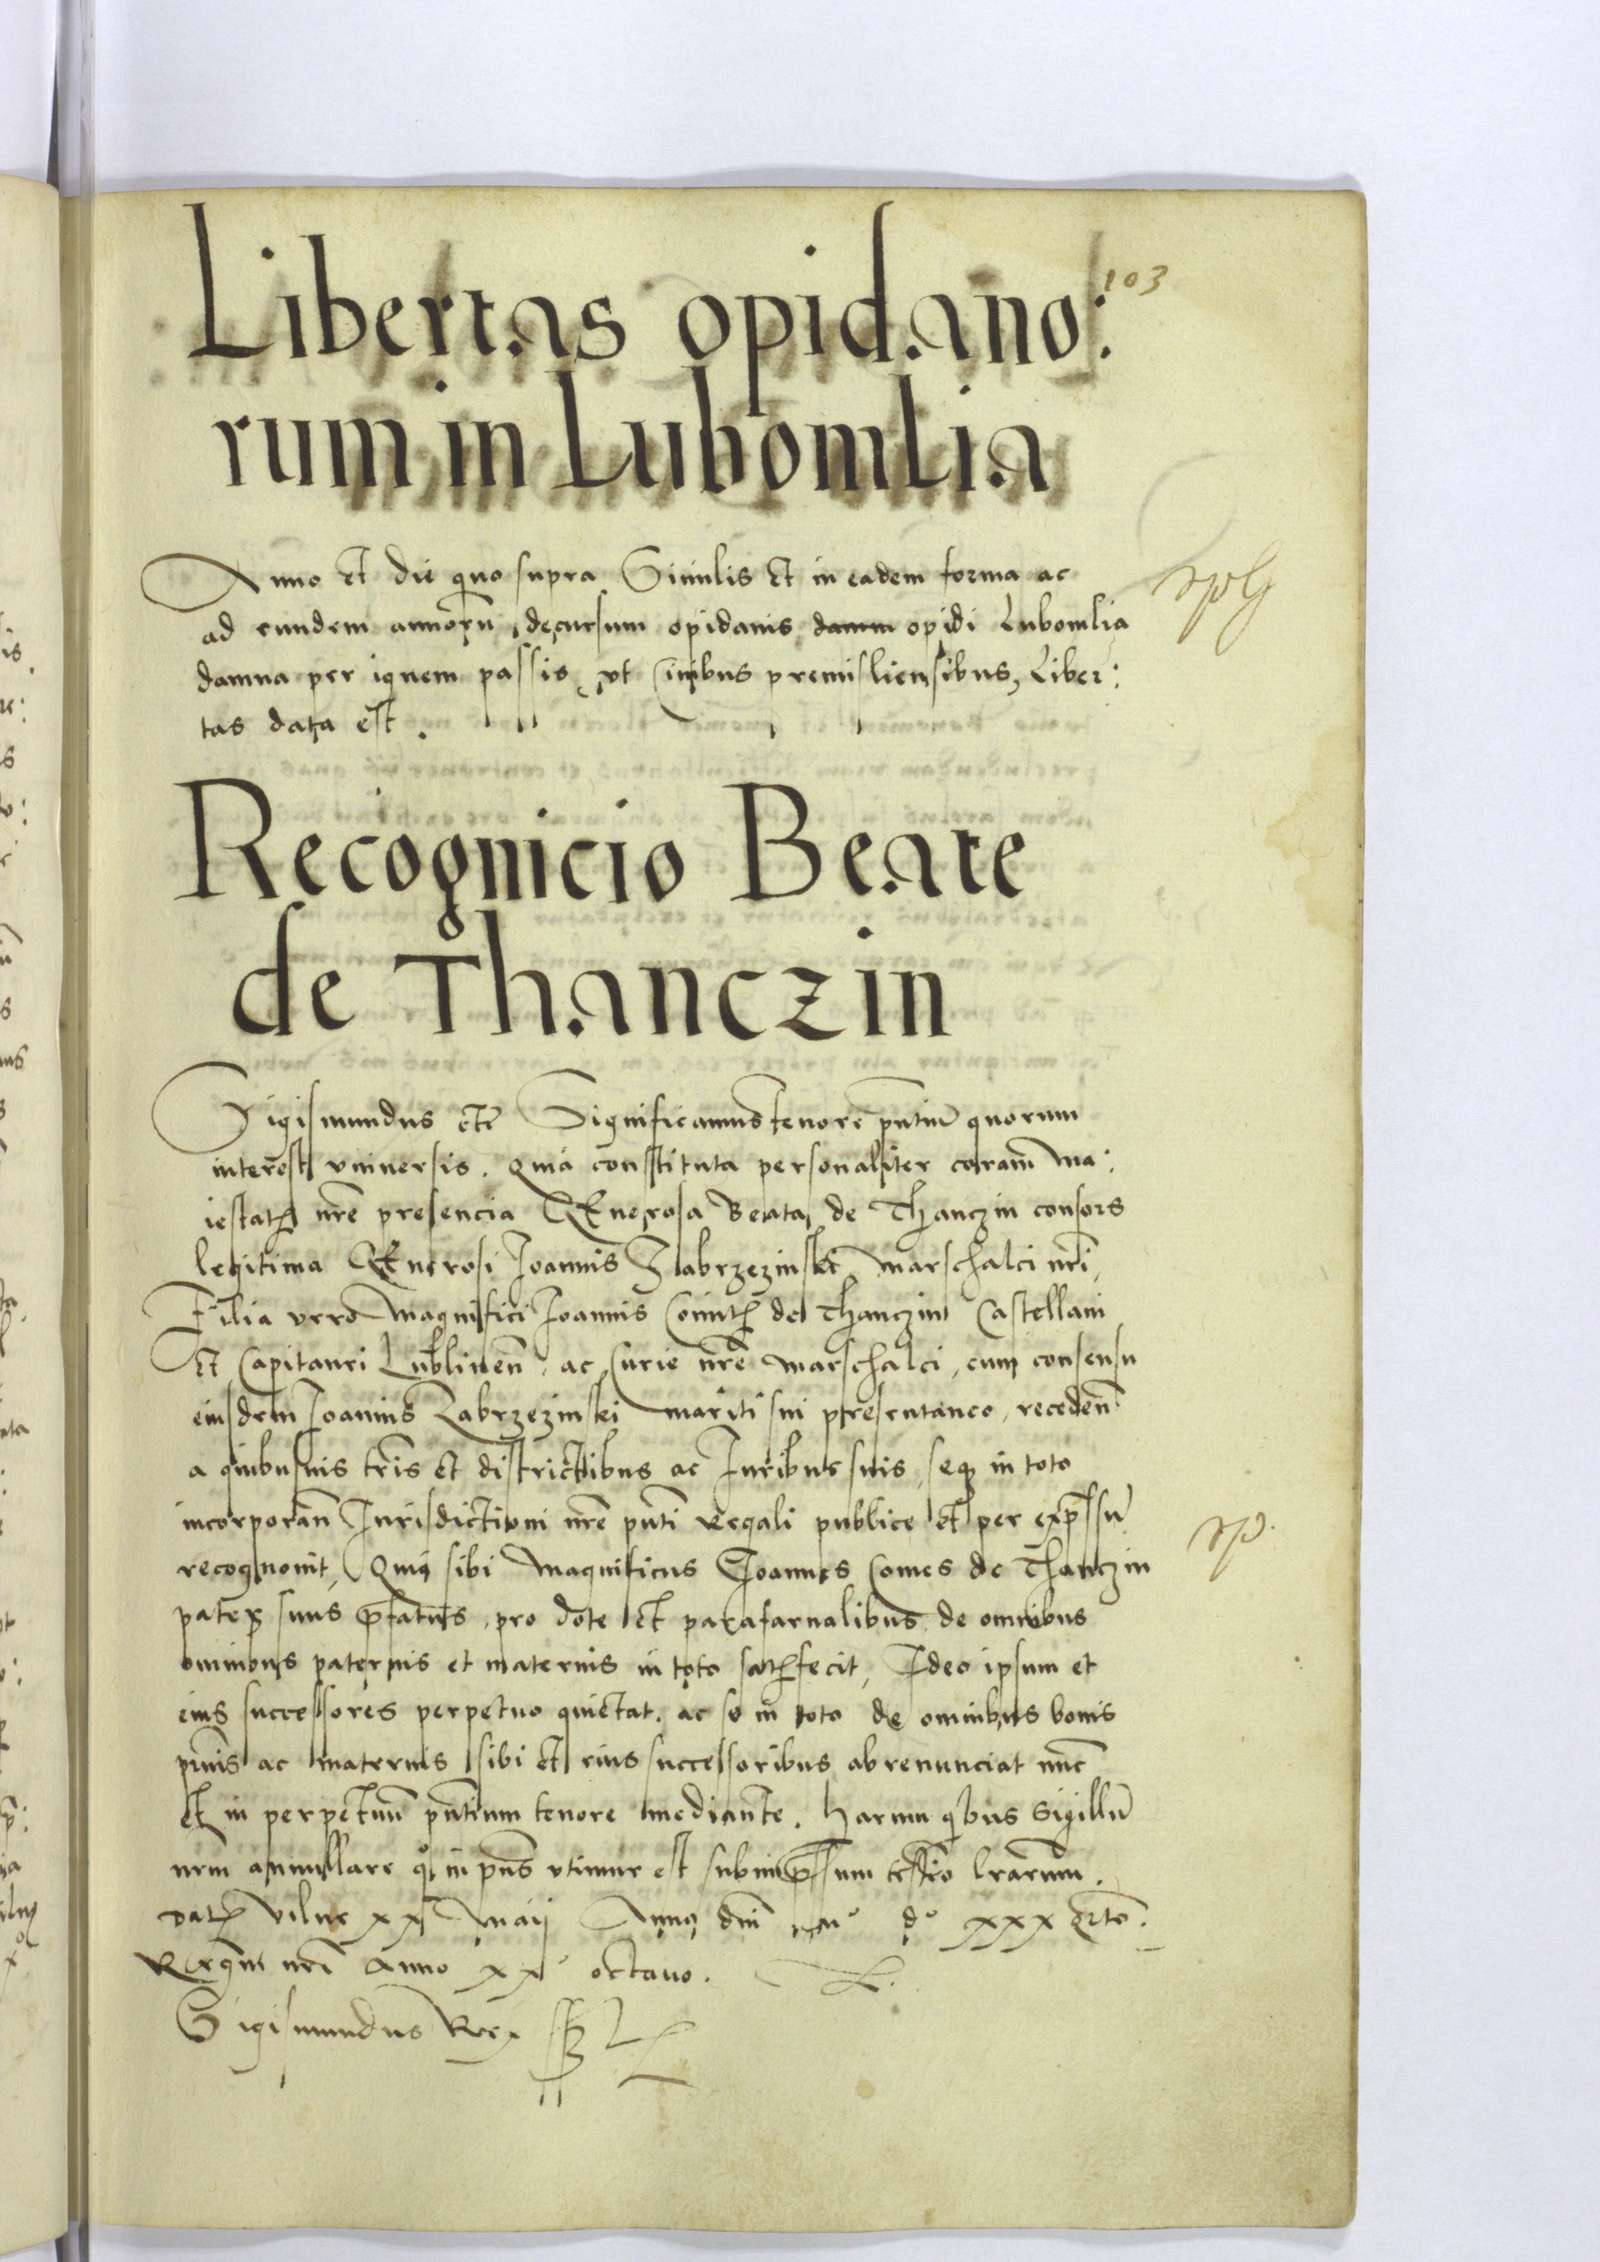 103
Libertas opidano:
rum in Lubomlia
Anno et die quo supra Similis et in eadem forma ac
ad eundem annorū decursum opidanis damn opidi Lubomlia
damna per ignem passis, vt Civibus premisliensibus, Liber:
tas data est.
Recognicio Beate
de Thanczin
Sigismundus etc Significamus tenore pn̄tiū quorum
interest vniversis. Quia constituta personaliter coram Ma:
iestatis nr̄e presencia Generosa Beata de Thanczin consors
legitima Generosi Joannis Zabrzezinski Marschalci nr̄i,
Filia vero Magnifici Joannis Comitis de Thanczin Castellani
Et Capitanei Lublinen̄. ac Curie nr̄e Marschalci, cum consensu
eiusdem Joannis Zabrzezinski mariti sui presentaneo, receden̄
a quibusvis tr̄is et districtibus ac Juribus suis, seq3 in toto
incorporan̄ Jurisdictioni nr̄e pn̄ti Regali publice et per exp̄ssū
recognovit, Quia sibi Magnificus Joannes Comes de Thanczin
pater suus p̄fatus, pro dote et parafarnalibus de omnibus
omnibus paternis et maternis in toto satisfecit, Ideo ipsum et
eius successores perpetuo quietat. ac se in toto de omnibus bonis
pr̄nis ac maternis sibi et eius successoribus abrenunciat nūc
et in perpetuū pn̄tium tenore mediante. Harum qbus Sigillū
nr̄m annullare qo in pn̄s vtimur est subimp̄ssum testīo lr̄arum.
Dat Vilne xx Maij Anno dn̄i Mo do xxx qrto.
Regn̄i nr̄i Anno xx octavo.
Sigismundus Rex